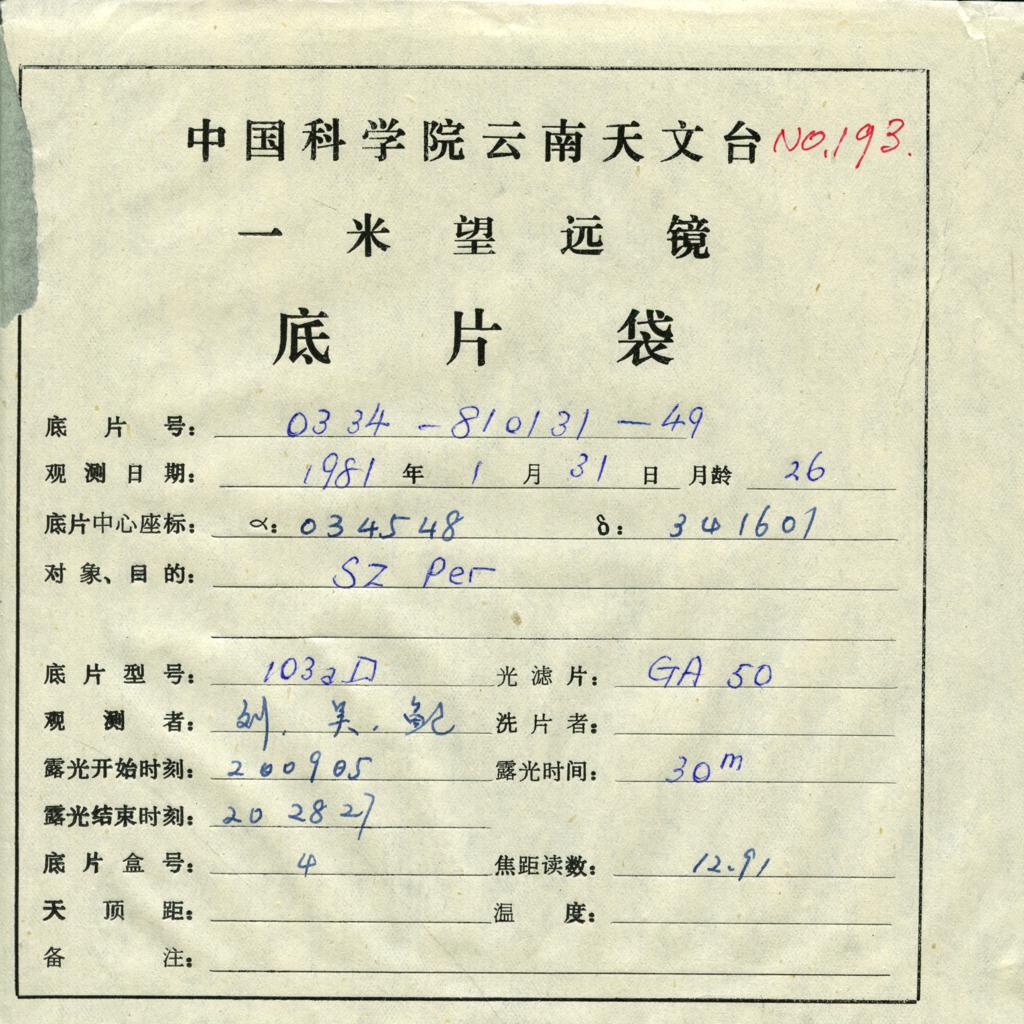 中国科学院云南天文台 NO.193.
一米望远镜
底片袋
底片号： 0334-810131-49
观测日期： 1981 年 1 月 31 日 月龄 26
底片中心座标： α： 034548 δ： 341601
对象、目的： SZ Per
底片型号： 103aD 光滤片： GA 50
观测者： 刘. 吴. 鲍 洗片者：
露光开始时刻： 200905 露光时间： 30m
露光结束时刻： 20 28 27
底片盒号： 4 焦距读数： 12.91
天顶距： 温度：
备注：